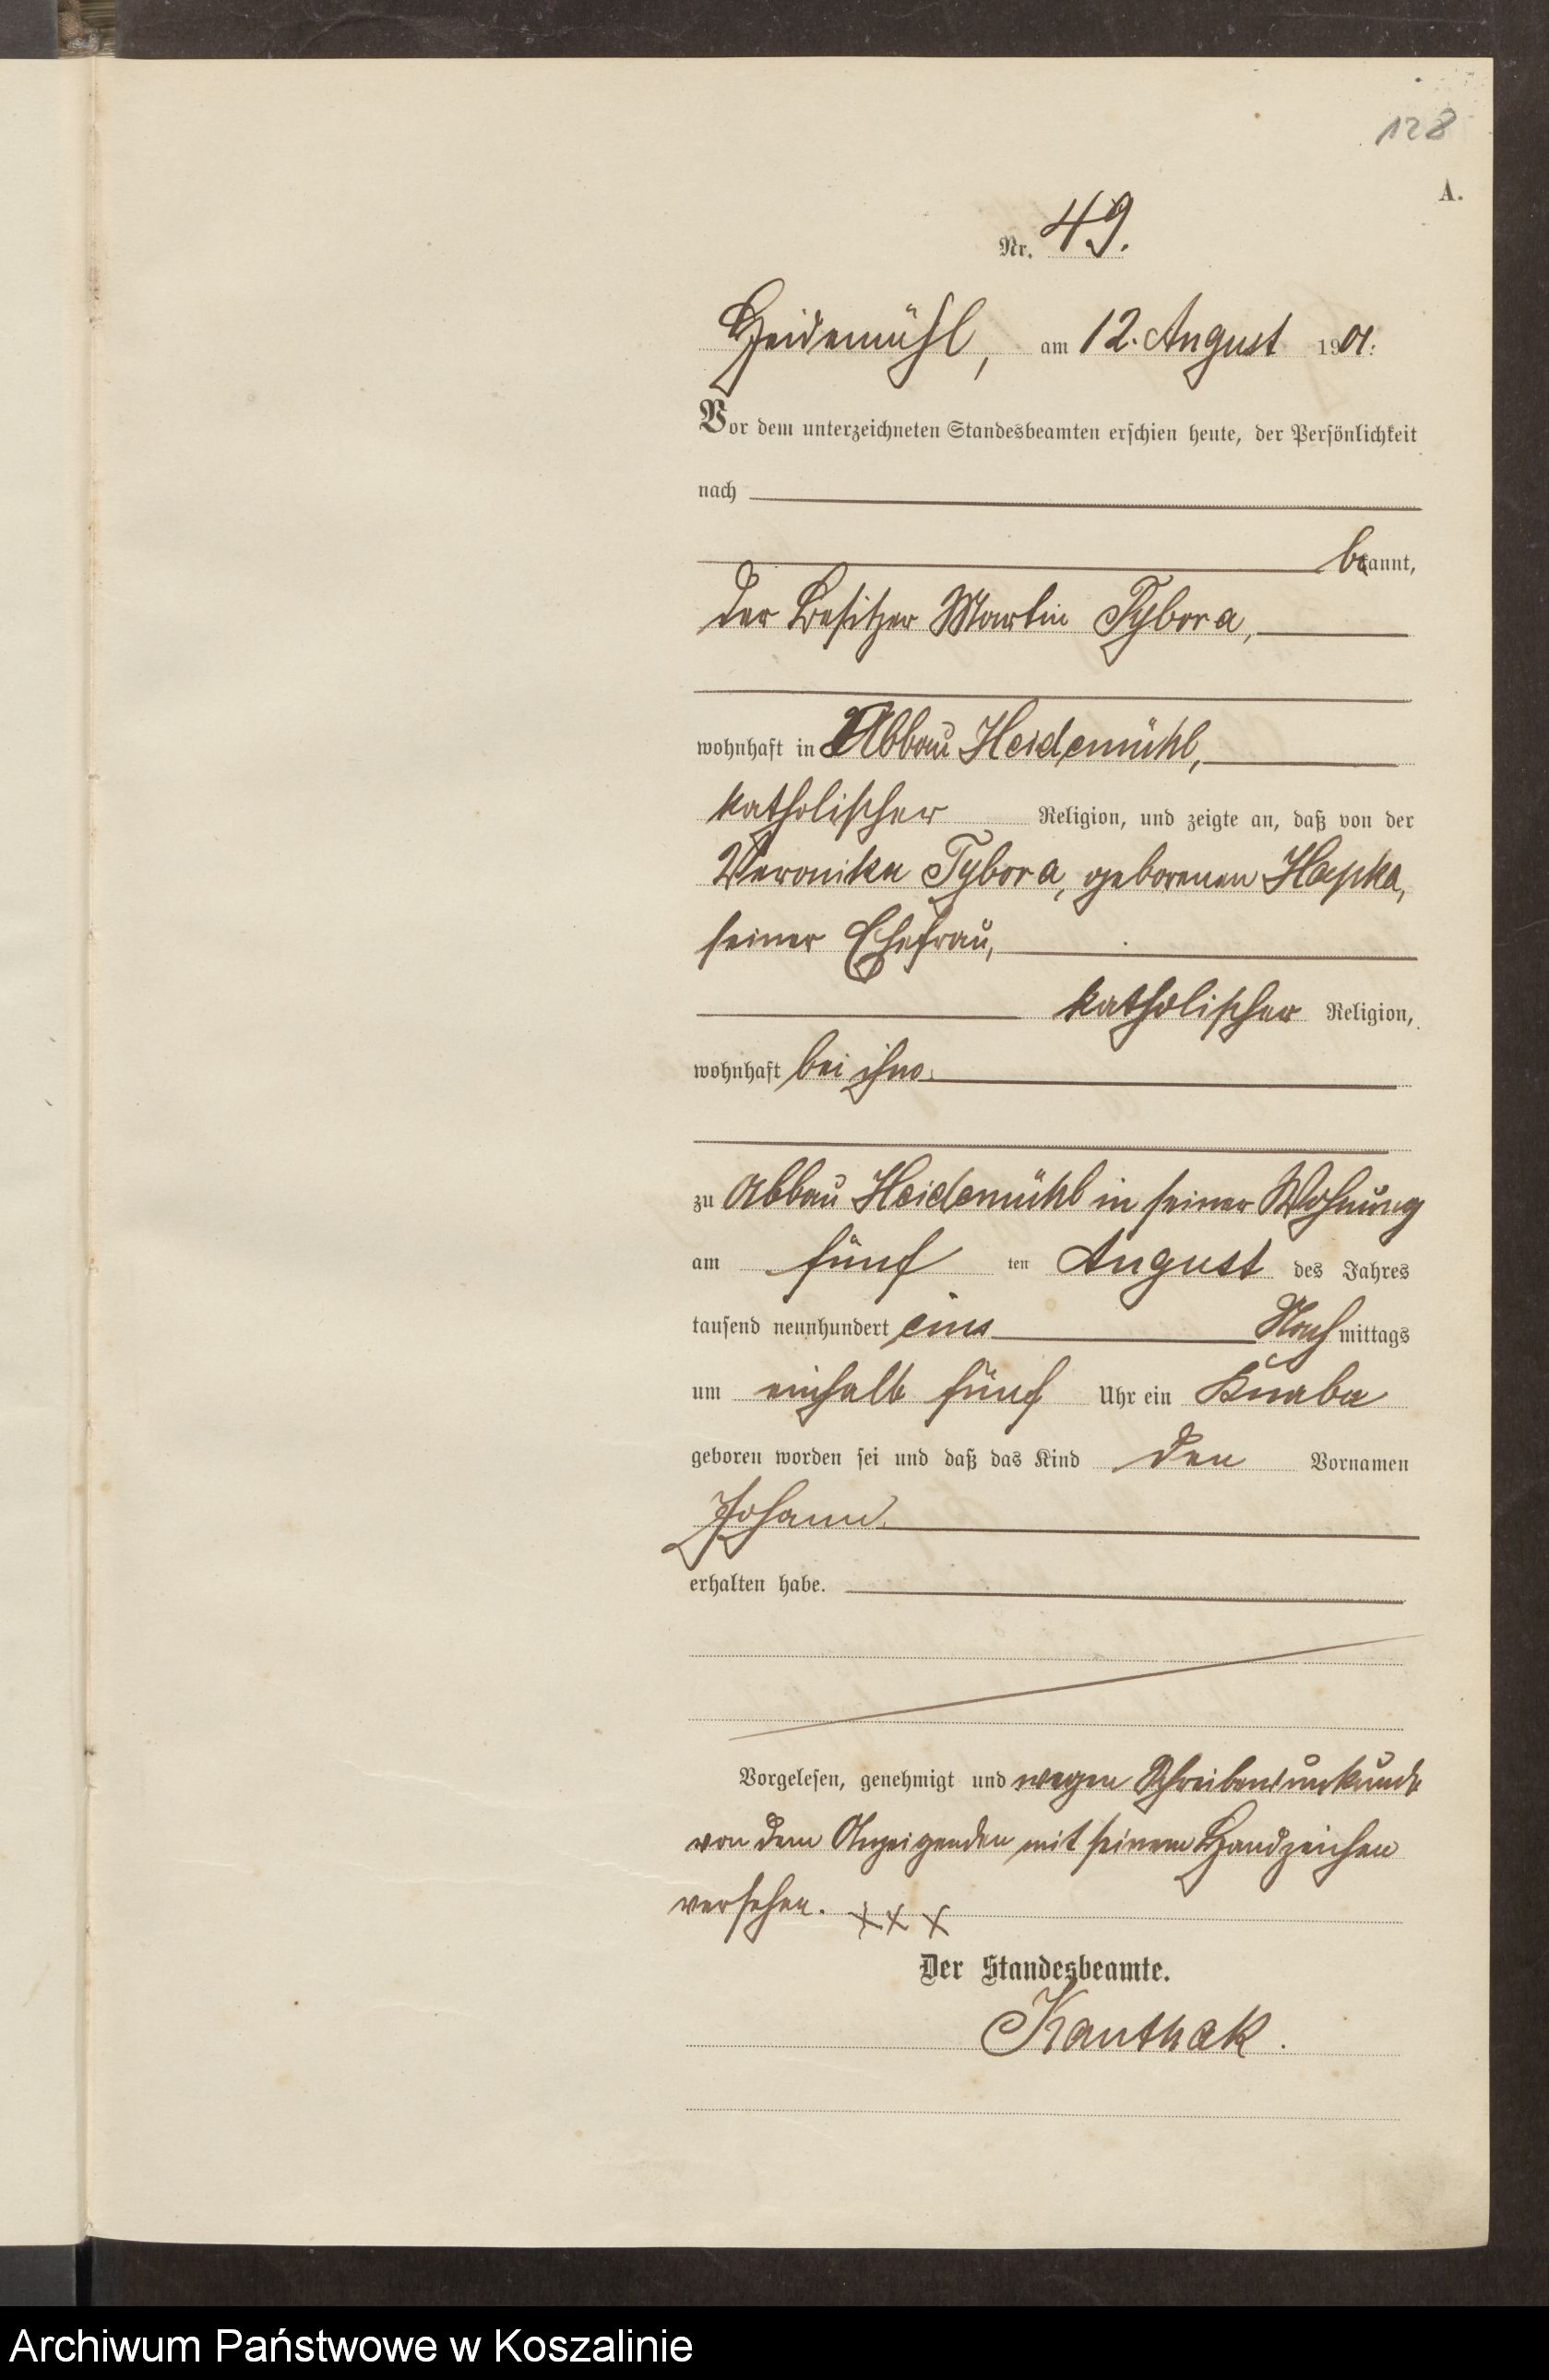 128
A.
Nr. 49.
Heidemühl, am 12. August 1901.
Vor dem unterzeichneten Standesbeamten erschien heute, der Persönlichkeit
nach
bekannt,
der Besitzer Martin Tybora,
wohnhaft in Abbau Heidemühl,
katholischer Religion, und zeigte an, daß von der
Veronika Tybora, geborenen Hapka,
seiner Ehefrau,
katholischer Religion,
wohnhaft bei ihm
zu Abbau Heidemühl in seiner Wohnung
am fünf ten August des Jahres
tausend neunhundert eins Nach mittags
um einhalb fünf Uhr ein Knabe
geboren worden sei und daß das Kind den Vornamen
Johann
erhalten habe.
Vorgelesen, genehmigt und wegen Schreibensunkunde
von dem Anzeigenden mit seinem Handzeichen
versehen. x x x
Der Standesbeamte.
Kanthak.
Archiwum Państwowe w Koszalinie